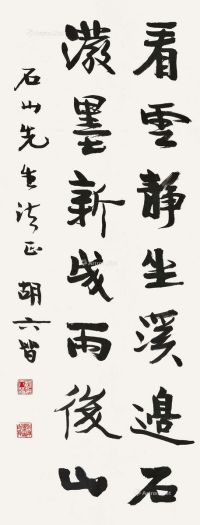 看雲静坐溪邊石
潑墨新成雨後山
石山先生法正 胡六皆